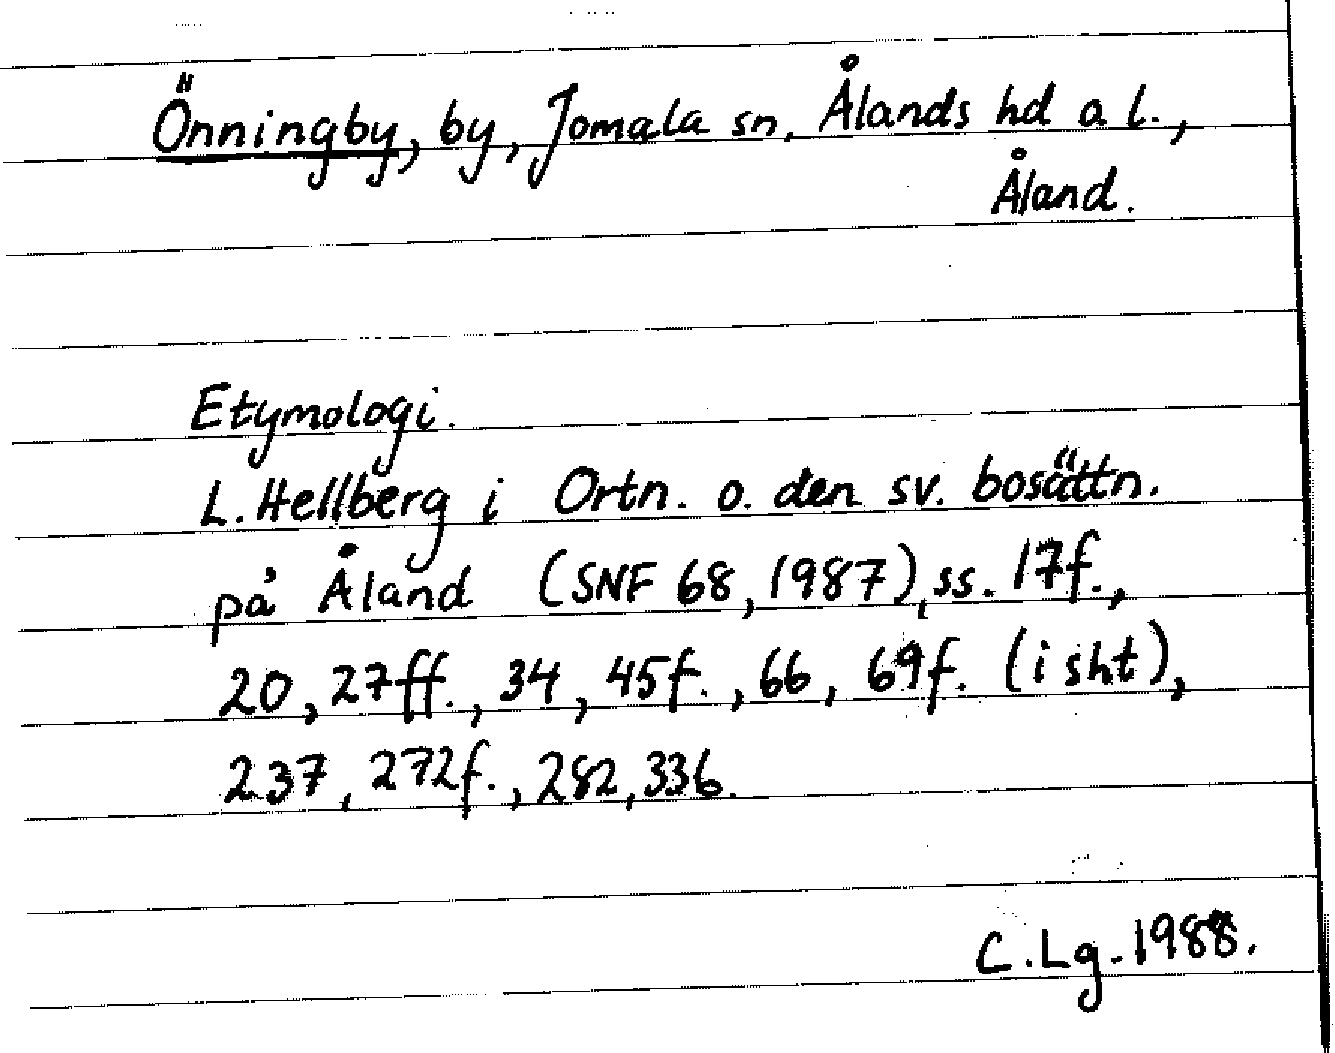 Önningby, by, Jomala sn, Ålands hd a l.,
Åland.
Etymologi.
L. Hellberg i Ortn. o. den sv. bosättn.
på Åland (SNF 68, 1987), ss. 17f.,
20, 27ff., 34, 45f., 66, 69f. (i sht),
237, 272f., 282, 336.
C. Lg. 1988.